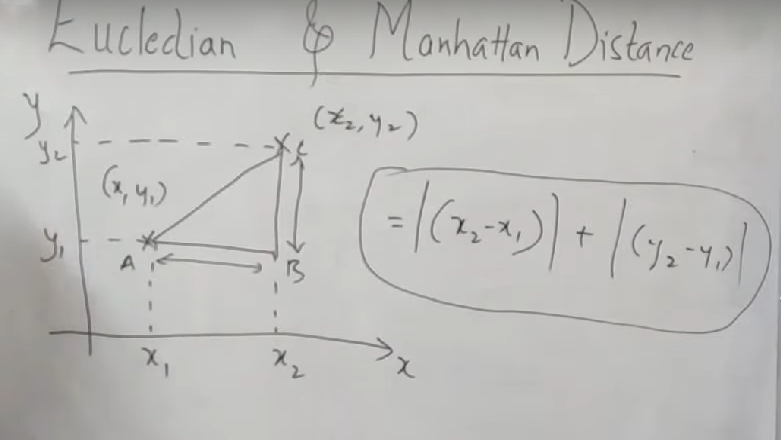 Eucledian & Manhattan Distance
y
(x₂, y₂)
y₂
C
(x₁ y₁)
= |(x₂-x₁)| + |(y₂-y₁)|
y₁
A
B
x₁
x₂
x